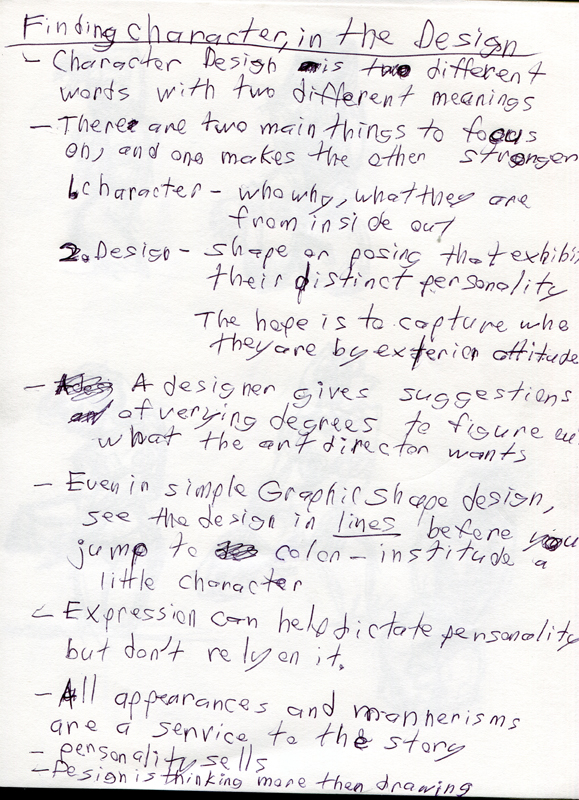 Finding Character, in the Design
- Character Design is two different
words with two different meanings
- There are two main things to focus
on, and one makes the other stronger
1. Character - who why, what they are
from inside out
2. Design - shape or posing that exhibi
their distinct personality
The hope is to capture who
they are by exterior attitude
- A designer gives suggestions
of verying degrees to figure
what the art director wants
- Even in simple Graphic shape design,
see the design in lines before you
jump to color - institude a
little character
- Expression can help dictate personality
but don't rely on it.
- All appearances and mannerisms
are a service to the story
- personality sells
- Design is thinking more then drawing